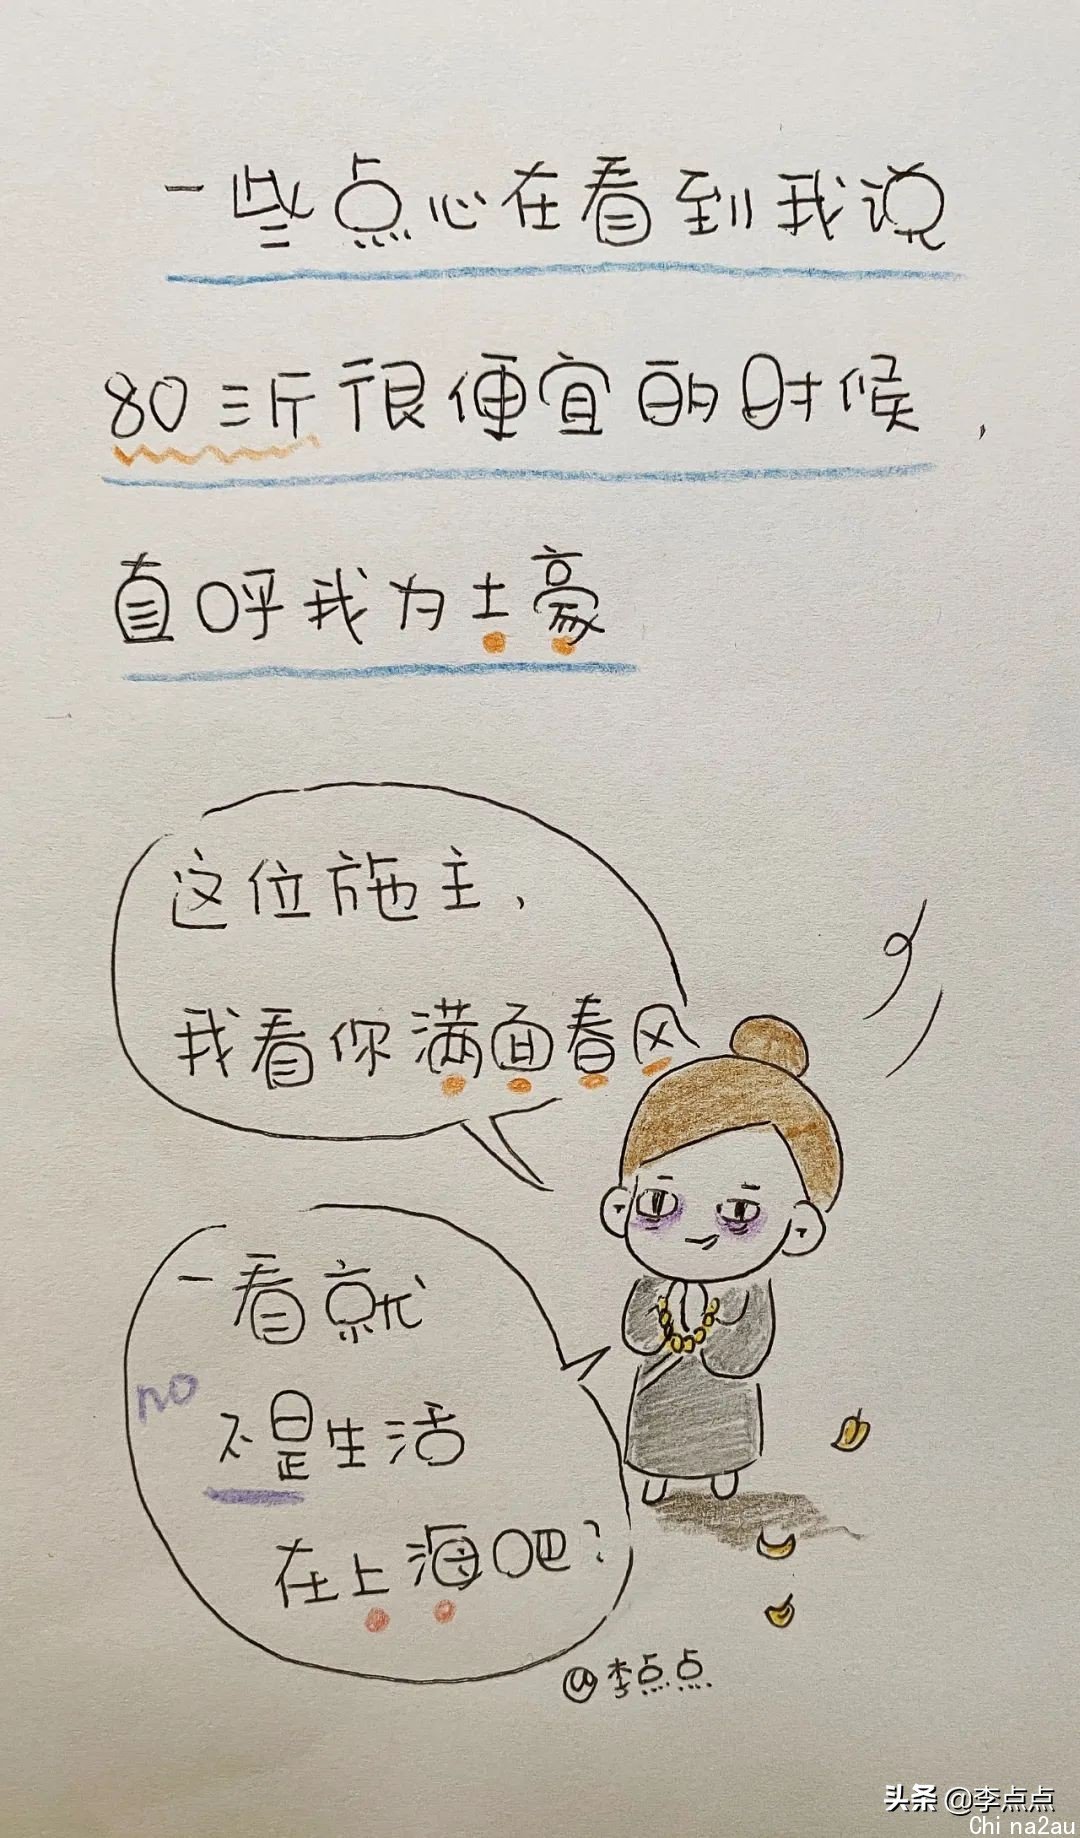 一些点心在看到我说
80三斤很便宜的时候，
直呼我为土豪
这位施主，
我看你满面春风
一看就
no
不是生活
在上海吧？
@李点点
头条 @李点点
China2au